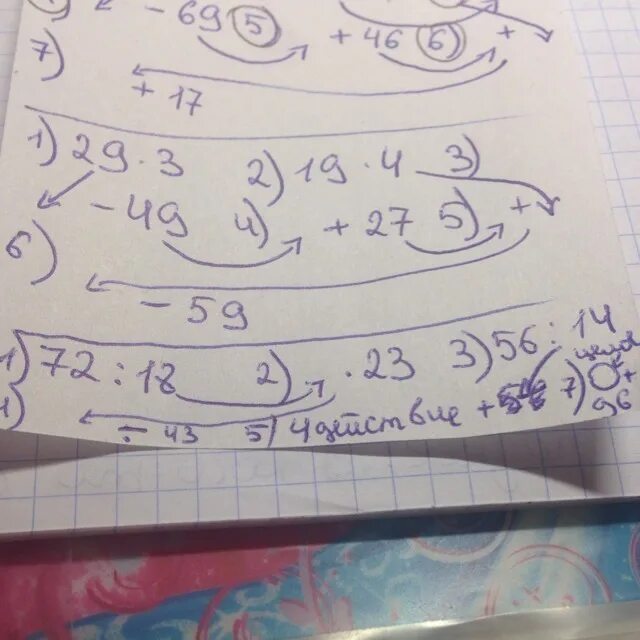 - 69 5 + 46 6 +
7)
+ 17
1) 29 · 3 2) 19 · 4 3)
- 49 4) + 27 5) +
6)
- 59
1) 72 : 18 2) · 23 3) 56 : 14
1) - 43 5) 4 действие + 7) 0 +
96